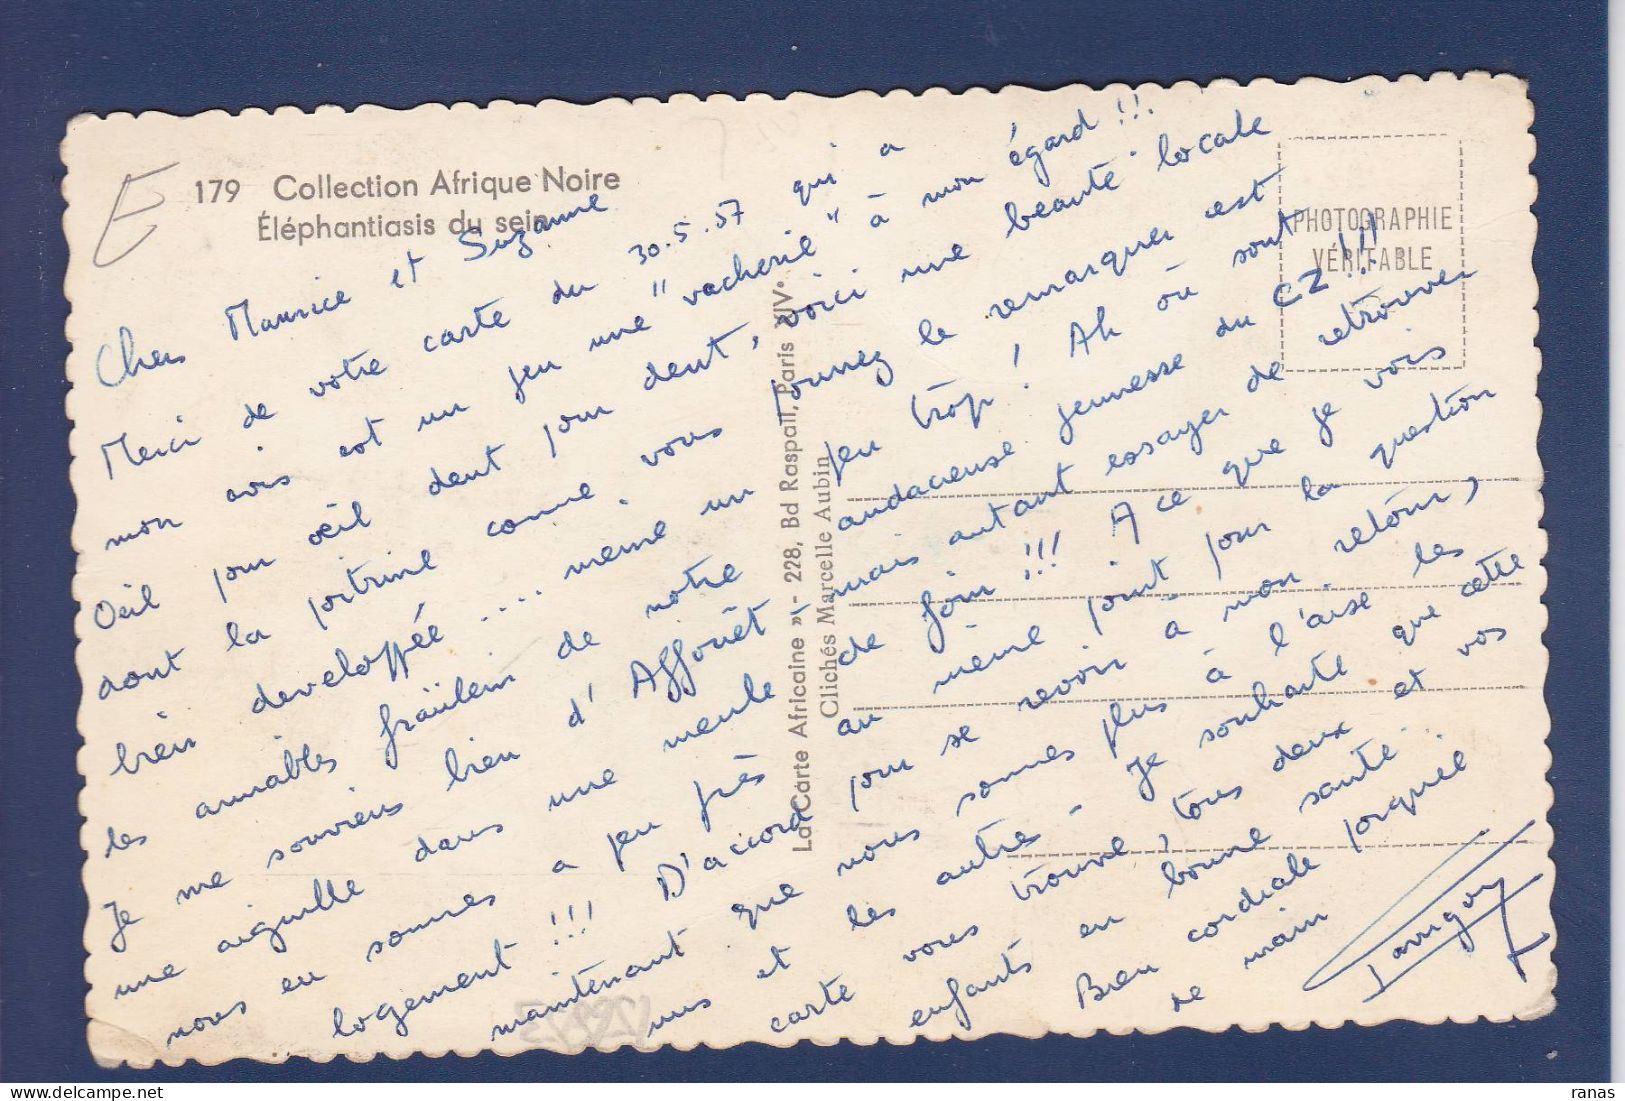 E
179 Collection Afrique Noire
Éléphantiasis du sein
PHOTOGRAPHIE
VÉRITABLE
La Carte Africaine » - 228, Bd Raspail, Paris XIV°
Clichés Marcelle Aubin
Chers Maurice et Suzanne
Merci de votre carte du 30.5.57 qui a
mon avis est un peu une "vacherie" à mon égard !!!.
Oeil pour oeil dent pour dent, voici une beauté locale
dont la poitrine comme vous pouvez le remarquer est
bien developpée .... meme un peu trop ! Ah où sont
les aimables fraülein de notre audacieuse jeunesse du CZ !!!
Je me souviens bien d'Affouët mais autant essayer de retrouver
une aiguille dans une meule de foin !!! A ce que je vois
nous en sommes a peu près au même point pour la question
logement !!! D'accord pour se revoir à mon retour,
maintenant que nous sommes plus à l'aise les
uns et les autres - Je souhaite que cette
carte vous trouve, tous deux et vos
enfants en bonne santé...
Bien cordiale
de main
ranas